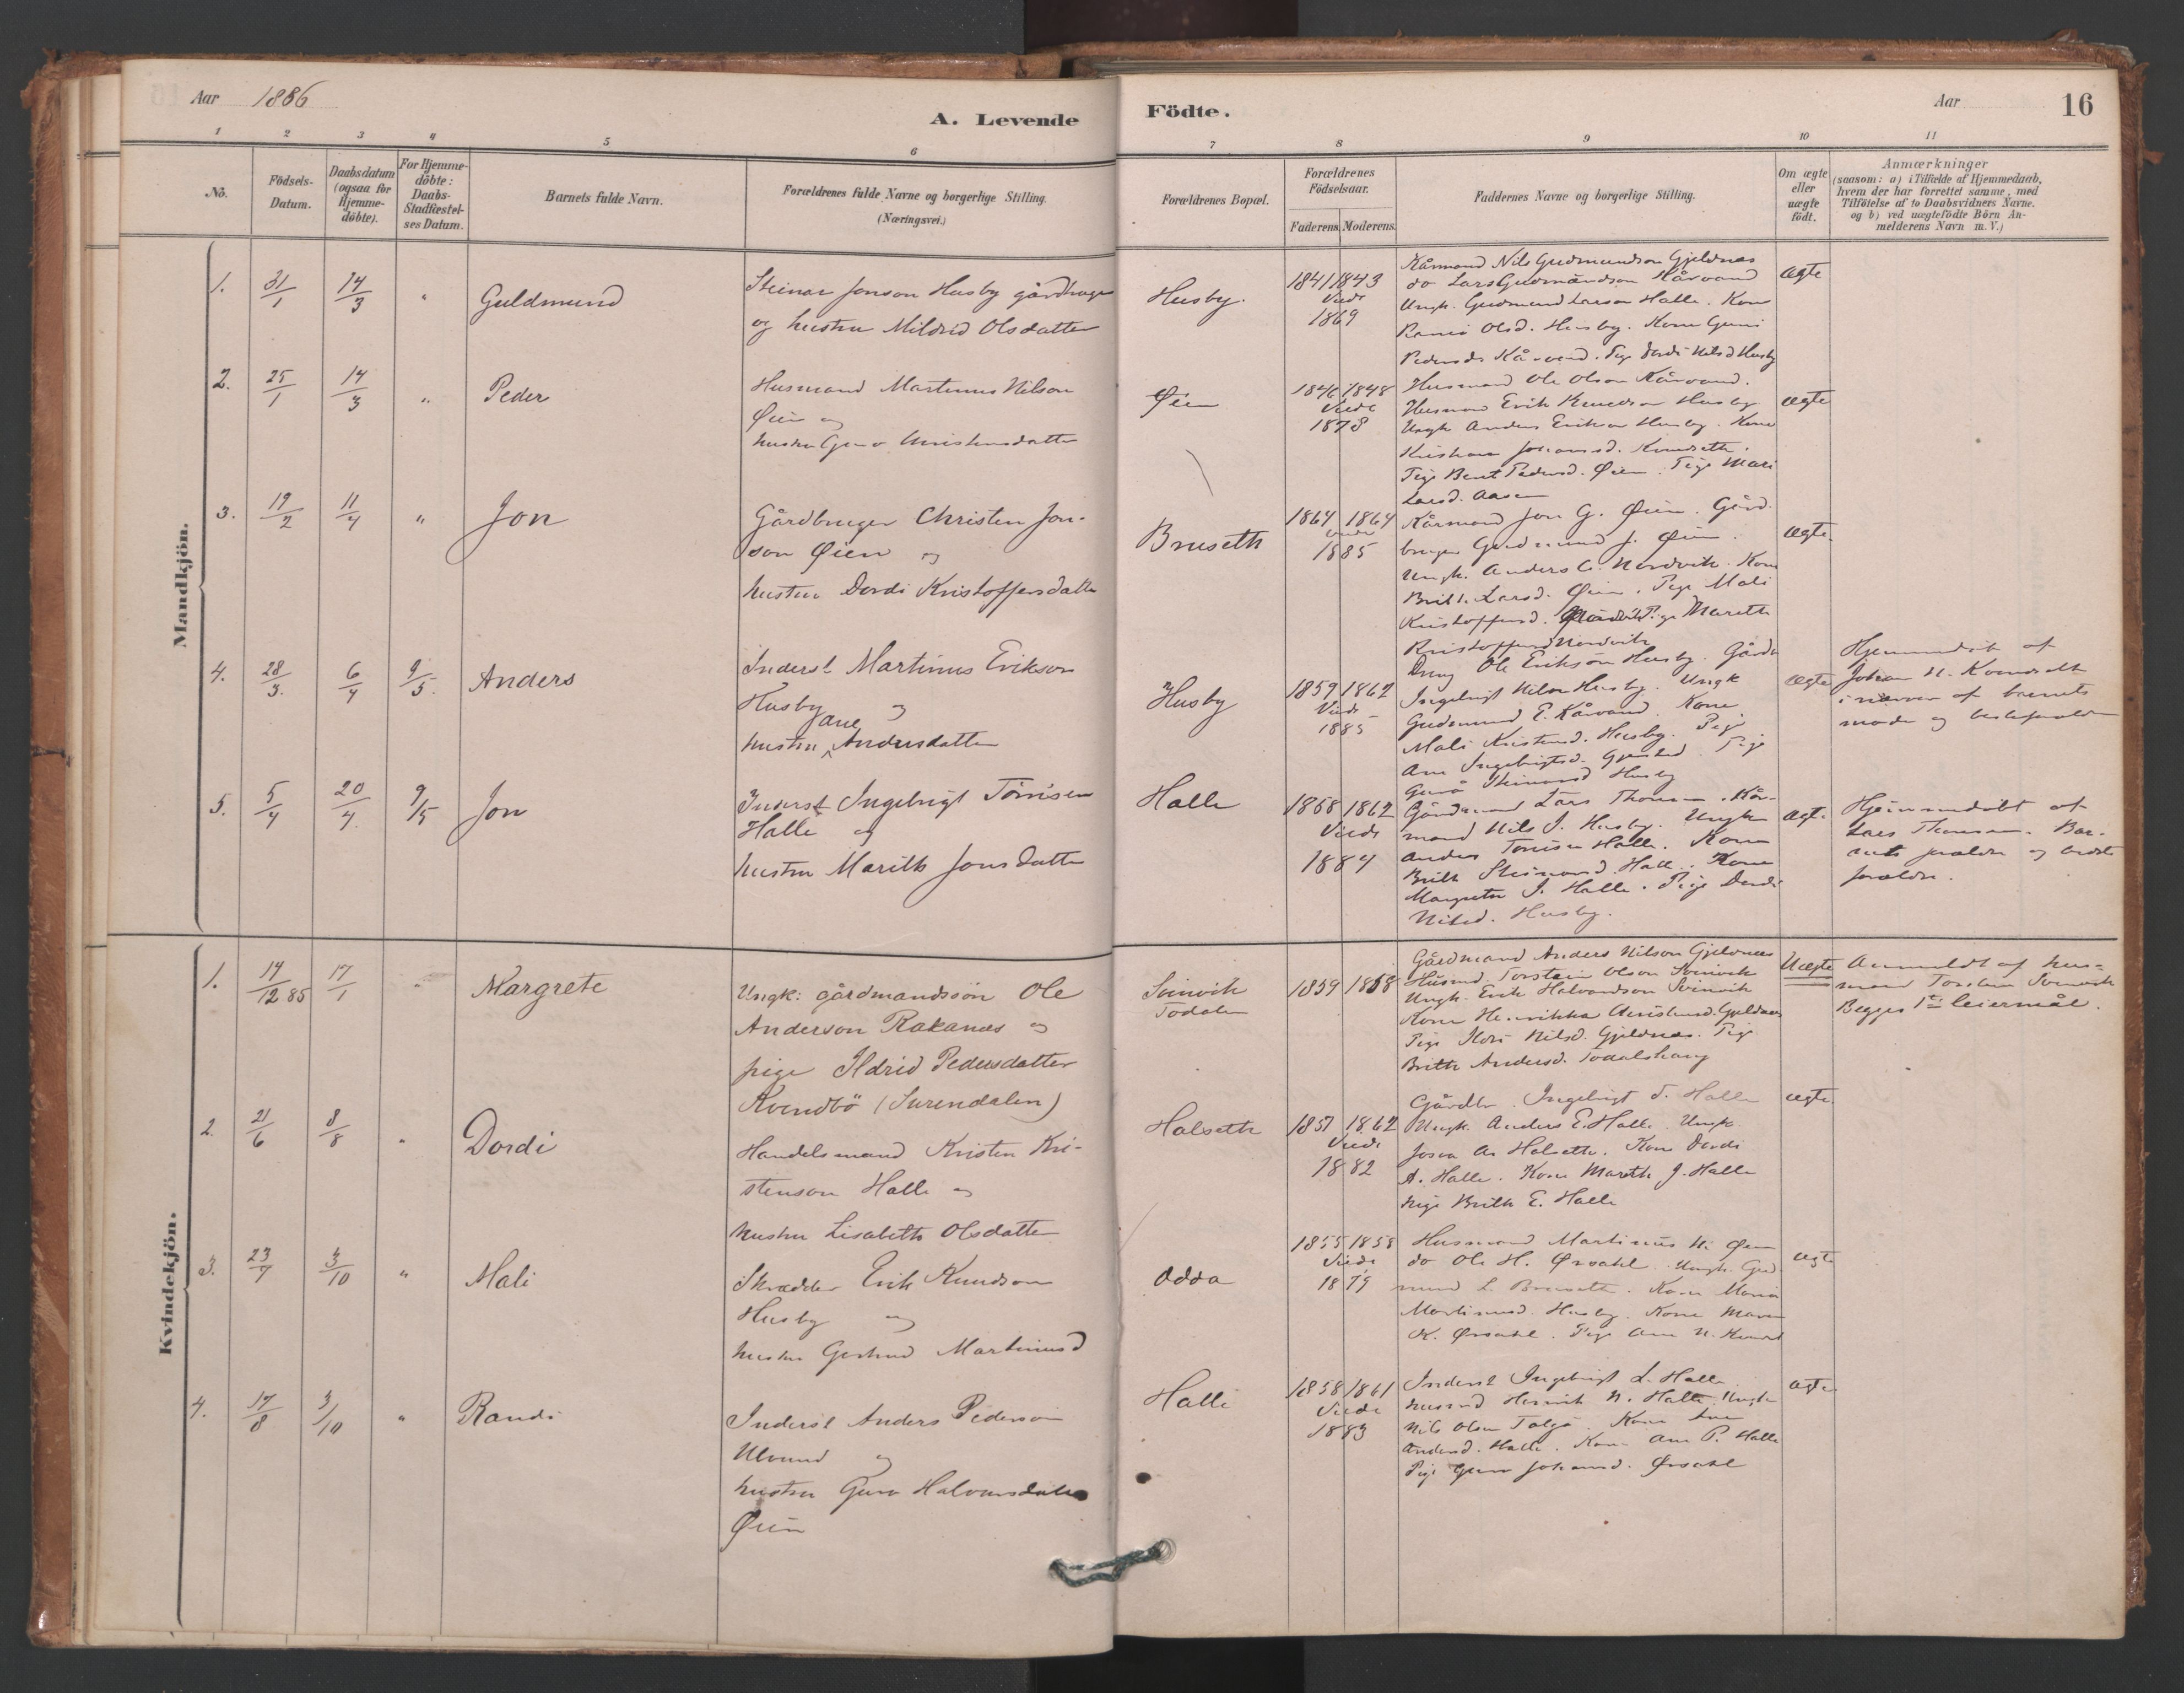 Aar 1886
A. Levende Födte.
Aar 16
1 2 3 4 5 6 7 8 9 10 11
No.
Födsels-Datum.
Daabsdatum (ogsaa for Hjemme-döbte).
For Hjemme-döbte: Daabs-Stadfæstel-ses Datum.
Barnets fulde Navn.
Forældrenes fulde Navne og borgerlige Stilling. (Næringsvei.)
Forældrenes Bopæl.
Forældrenes Födselsaar.
Faderens. Moderens.
Faddernes Navne og borgerlige Stilling.
Om ægte eller uægte födt.
Anmærkninger
(saasom: a) i Tilfælde af Hjemmedaab,
hvem der har forrettet samme, med
Tilföielse af to Daabsvidners Navne.
og b) ved uægtefödte Börn An-
melderens Navn m. V.)
Mandkjön.
1. 31/1 14/3 " Guldmund
Steinar Jonson Husby gårdbruger
og hustru Mildrid Olsdatter
Husby.
1841 1843
Viede
1869
Kårmand Nils Gudmundson Gjeldnæs
do Lars Gudmundson Kårvand
Ungk. Gudmund Larson Halle. Kone
Olsd. Husby. Kone Guru
Pedersdr Kårvand. Pige Dordi Nilsd Husby
ægte
2. 25/1 14/3 " Peder
Husmand Martinus Nilson
Øien og
hustru Guro Christensdatter
Øien
1846 1848
Viede
1878
Husmand Ole Olson Kårvand.
Husmand Erik Knudson Husby
Ungk Anders Erikson Husby. Kone
Kristiane Johansd.
Pige Berit Pedersd. Øien. Pige Mari
Larsd. Aasen
ægte
3. 19/2 11/4 " Jon
Gårdbruger Christen Jon-
son Øien og
hustru Dordi Kristoffersdatter
Bruseth
1864 1864
viede
1885
Kårmand Jon G. Øien. Gård-
bruger Gudmund J. Øien.
Ungk. Anders C. Nordvik. Kone
Brit Larsd. Øien. Pige Mali
Kristoffersd. Nordvik Pige Mareth
Kristoffersd Nordvik
ægte.
4. 28/3. 6/4 9/5. Anders
Inderst Martinus Erikson
Husby og
hustru Ane Andersdatter
Husby
1859 1862
Viede
1885
Dreng Ole Erikson Husby. Gårdb
Ingebrigt Nilson Husby. Ungk
Gudmund E. Kårvand. Kone
Mali Kristensd. Husby. Pige
Ane Ingebrigtsd. Pige
Guro Steinarsd Husby
ægte
Hjemmedöbt af
Johan N.
i nærvær af barnets
moder og bedsteforældre
5. 5/4 20/4. 9/5 Jon
Inderst Ingebrigt Törrisen
Halle og
hustru Marith Jonsdatter
Halle
1858 1862
Viede
1884
Gårdmand Lars Thomsen. Kår-
mand Nils J. Husby. Ungk
Anders Törrisen Halle. Kone
Brith Steinarsd. Halle. Kone
Margrethe J. Halle. Pige Dordi
Nilsd. Husby.
ægte
Hjemmedöbt af
Lars Thomsen. Bar-
nets forældre og bedste
forældre.
Kvindekjön.
1. 14/12 85 17/1 " Margrete
Ungk: gårdmandssön Ole
Anderson Rakanæs og
pige Ildrid Pedersdatter
Kvendbö (Surendalen)
Svinvik
Todalen
1859 1858
Gårdmand Anders Nilson Gjeldnæs
Husmd. Torstein Olson Svinvik
Ungk. Erik Halvordson Svinvik
Kone Henrikka Christensd. Gjeldnæs
Pige Kari Nilsd. Gjeldnæs. Pige
Brith Andersd. Todalshaug
Uægte
Anmeldt af hus-
mand Torstein Svinvik
Begges 1ste leiermål.
2. 21/6 8/8 " Dordi
Handelsmand Kristen Kri-
stenson Halle og
hustru Lisabeth Olsdatter
Halseth
1857 1862
Viede
1882
Gårdbr. Ingebrigt T. Halle
Ungk. Anders E. Halle. Ungk
A. Halseth. Kone Dordi
A. Halle. Kone Mareth J. Halle
Pige Brith E. Halle
ægte
3. 23/7 3/10 " Mali
Skrædder Erik Knudson
Husby og
hustru Gjertrud Martinusd
Odda
1855 1858
Viede
1879
Husmand Martinus N. Øien
do Ole H. Ørsahl. Ungk. Gud-
mund L. Bruseth. Kone Maria
Martinusd. Husby. Kone Maren
K. Ørsahl. Pige Ane N.
ægte
4. 17/8 3/10 " Randi
Inderst Anders Pederson
Ulvund og
hustru Guro Halvorsdatter
Øien
Halle
1858 1861
Viede
1883
Inderst Ingebrigt L. Halle
Husmd Henrik N. Halle. Ungk
Nils Olsen Talgö. Kone Ane
Andersd. Halle. Kone Ane P. Halle
Pige Guro Johansd. Ørsahl
ægte